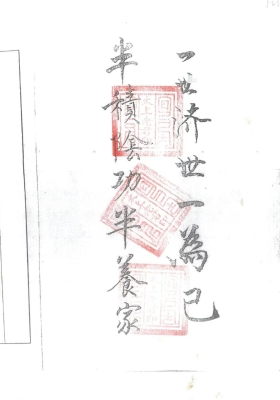 一世济世一為己
半積陰功半養家